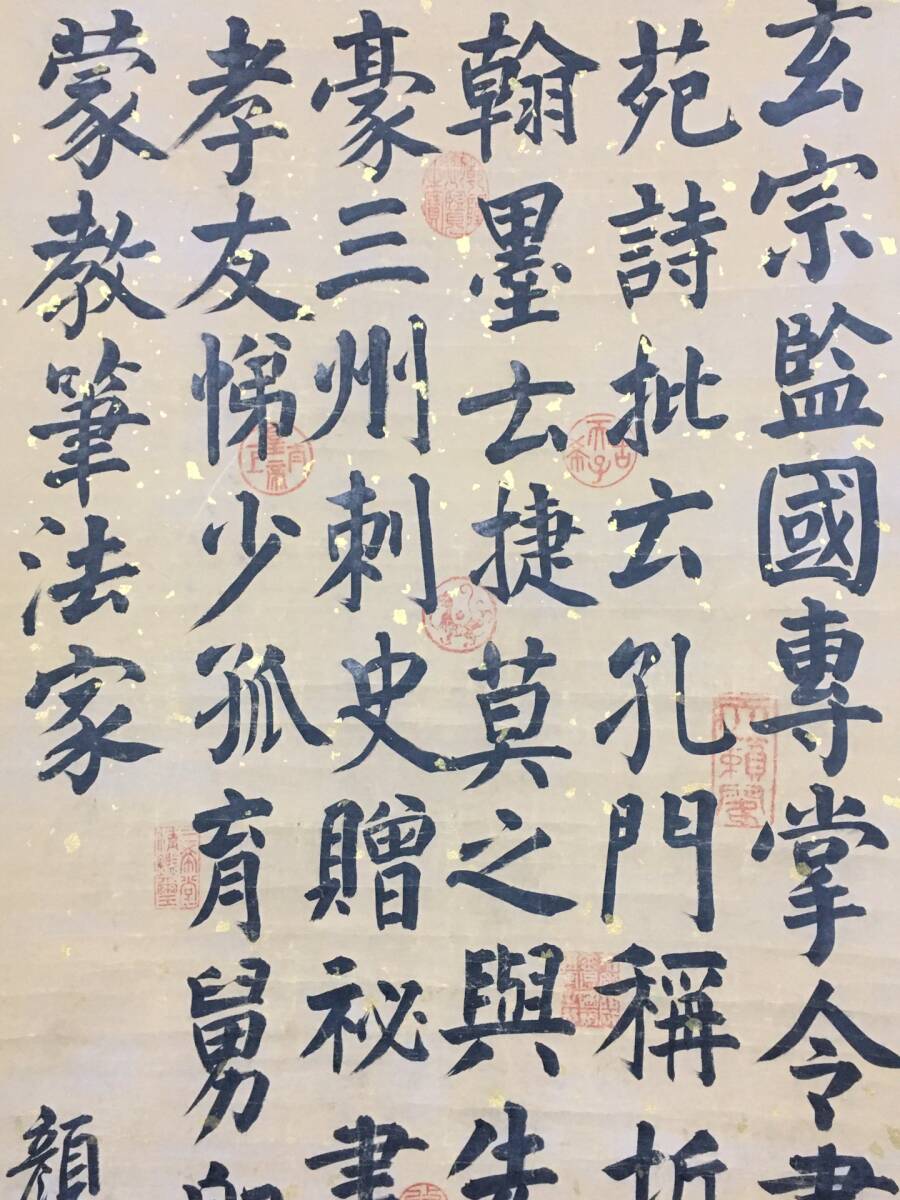 玄宗監國專掌令書
苑詩批云孔門稱哲
翰墨云捷莫之與先
豪三州刺史贈祕書
孝友悌少孤育舅
蒙教筆法家
顏